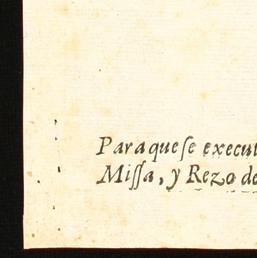 Para que ſe execut
Miſſa, y Rezo de